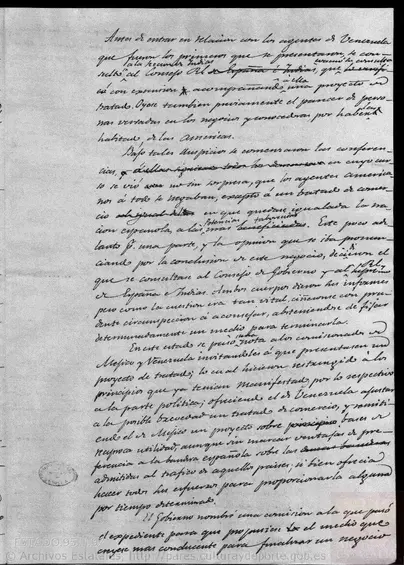 Antes de entrar en relacion con los agentes de Venezuela
que fueron los primeros que se presentaron, se con-
sultó al Consejo Rl de España é Indias, que
con extension acompañando un proyecto de
tratado. Oyose tambien previamente el parecer de perso-
nas versadas en los negocios y conocedoras por haber
habitado de las Americas.
Bajo tales auspicios se comenzaron las conferen-
cias, en cuyo curso
se vió no sin sorpresa, que los agentes america-
nos á todo se negaban, excepto á un tratado de comer-
cio en que quedase igualada la na-
cion española a las mas beneficiadas. Este poco ade-
lanto p. una parte, y la opinion que se iba pronun-
ciando por la conclusion de este negocio, hicieron el
que se consultase al Consejo de Gobierno y al
de España é Indias. Ambos cuerpos dieron sus informes
pero como la cuestion era tan vital, ciñeronse con pru-
dente circunspeccion á aconsejar, absteniendose de fijar
determinadamente un medio para terminarla.
En este estado se pasó nota á los comisionados de
Mejico y Venezuela invitandoles á que presentasen un
proyecto de tratado; lo cual hicieron restringido á los
principios que ya tenian manifestado por lo respectivo
á la parte politica; ofreciendo el de Venezuela ajustar
á la posible brevedad un tratado de comercio, y remitien-
do el de Mejico un proyecto sobre bases de
reciproca utilidad, aunque sin marcar ventajas de pre-
ferencia á la bandera española sobre las
admitidas al trafico de aquellos paises; si bien ofrecia
hacer todos sus esfuerzos para proporcionarla alguna
por tiempo determinado.
El Gobierno nombró una comision á la que pasó
el expediente para que propusiese el medio que
creyese mas conducente para finalizar un negocio
© Archivos Estatales, http://pares.culturaydeporte.gob.es